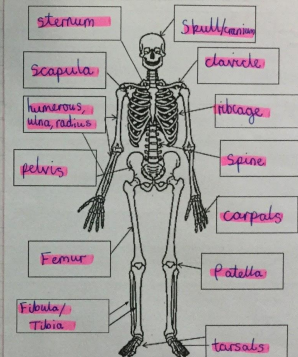 sternum
Skull/cranium
Scapula
clavicle
humerous,
ulna, radius
ribcage
pelvis
Spine
carpals
Femur
Patella
Fibula/
Tibia
tarsals